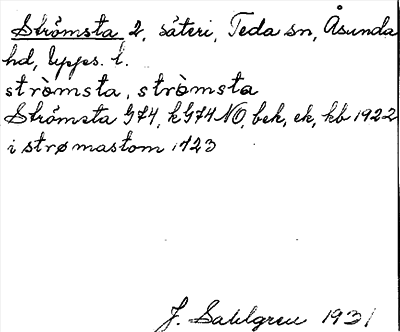 Strömsta 2, säteri, Teda sn, Åsunda
hd, Upps. l.
stròmsta, stròmsta
Strömsta G74, kG74NO, bek, ek, kb 1922
i strømastom 1723
J. Sahlgren 1931